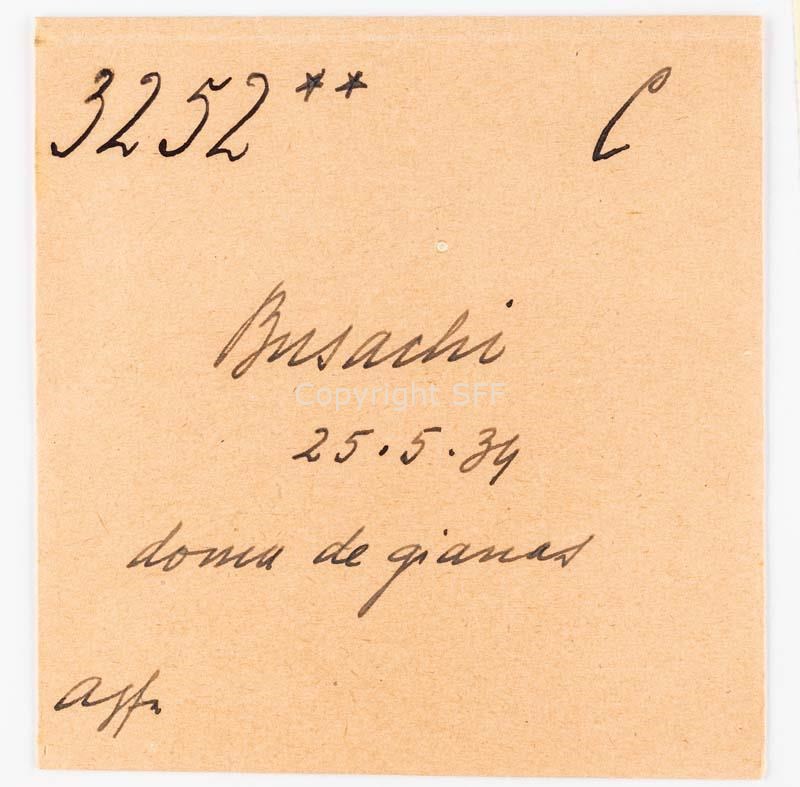 3252** C
Busachi
Copyright SFF
25.5.34
domu de gianas
agfa